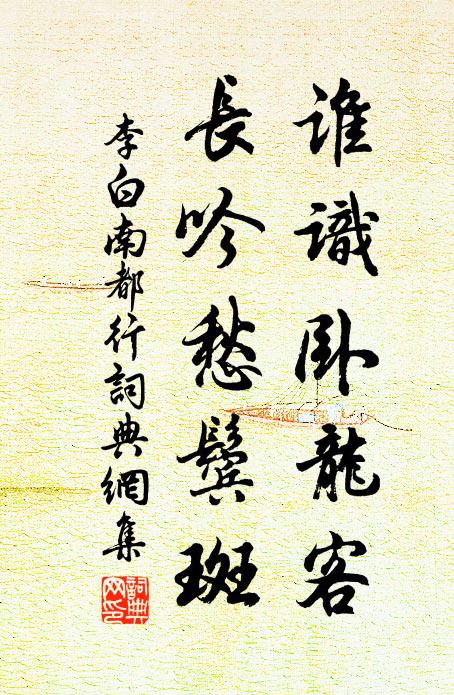 誰識臥龍客
長吟愁鬢斑
李白南都行詞典網集
詞典
网印